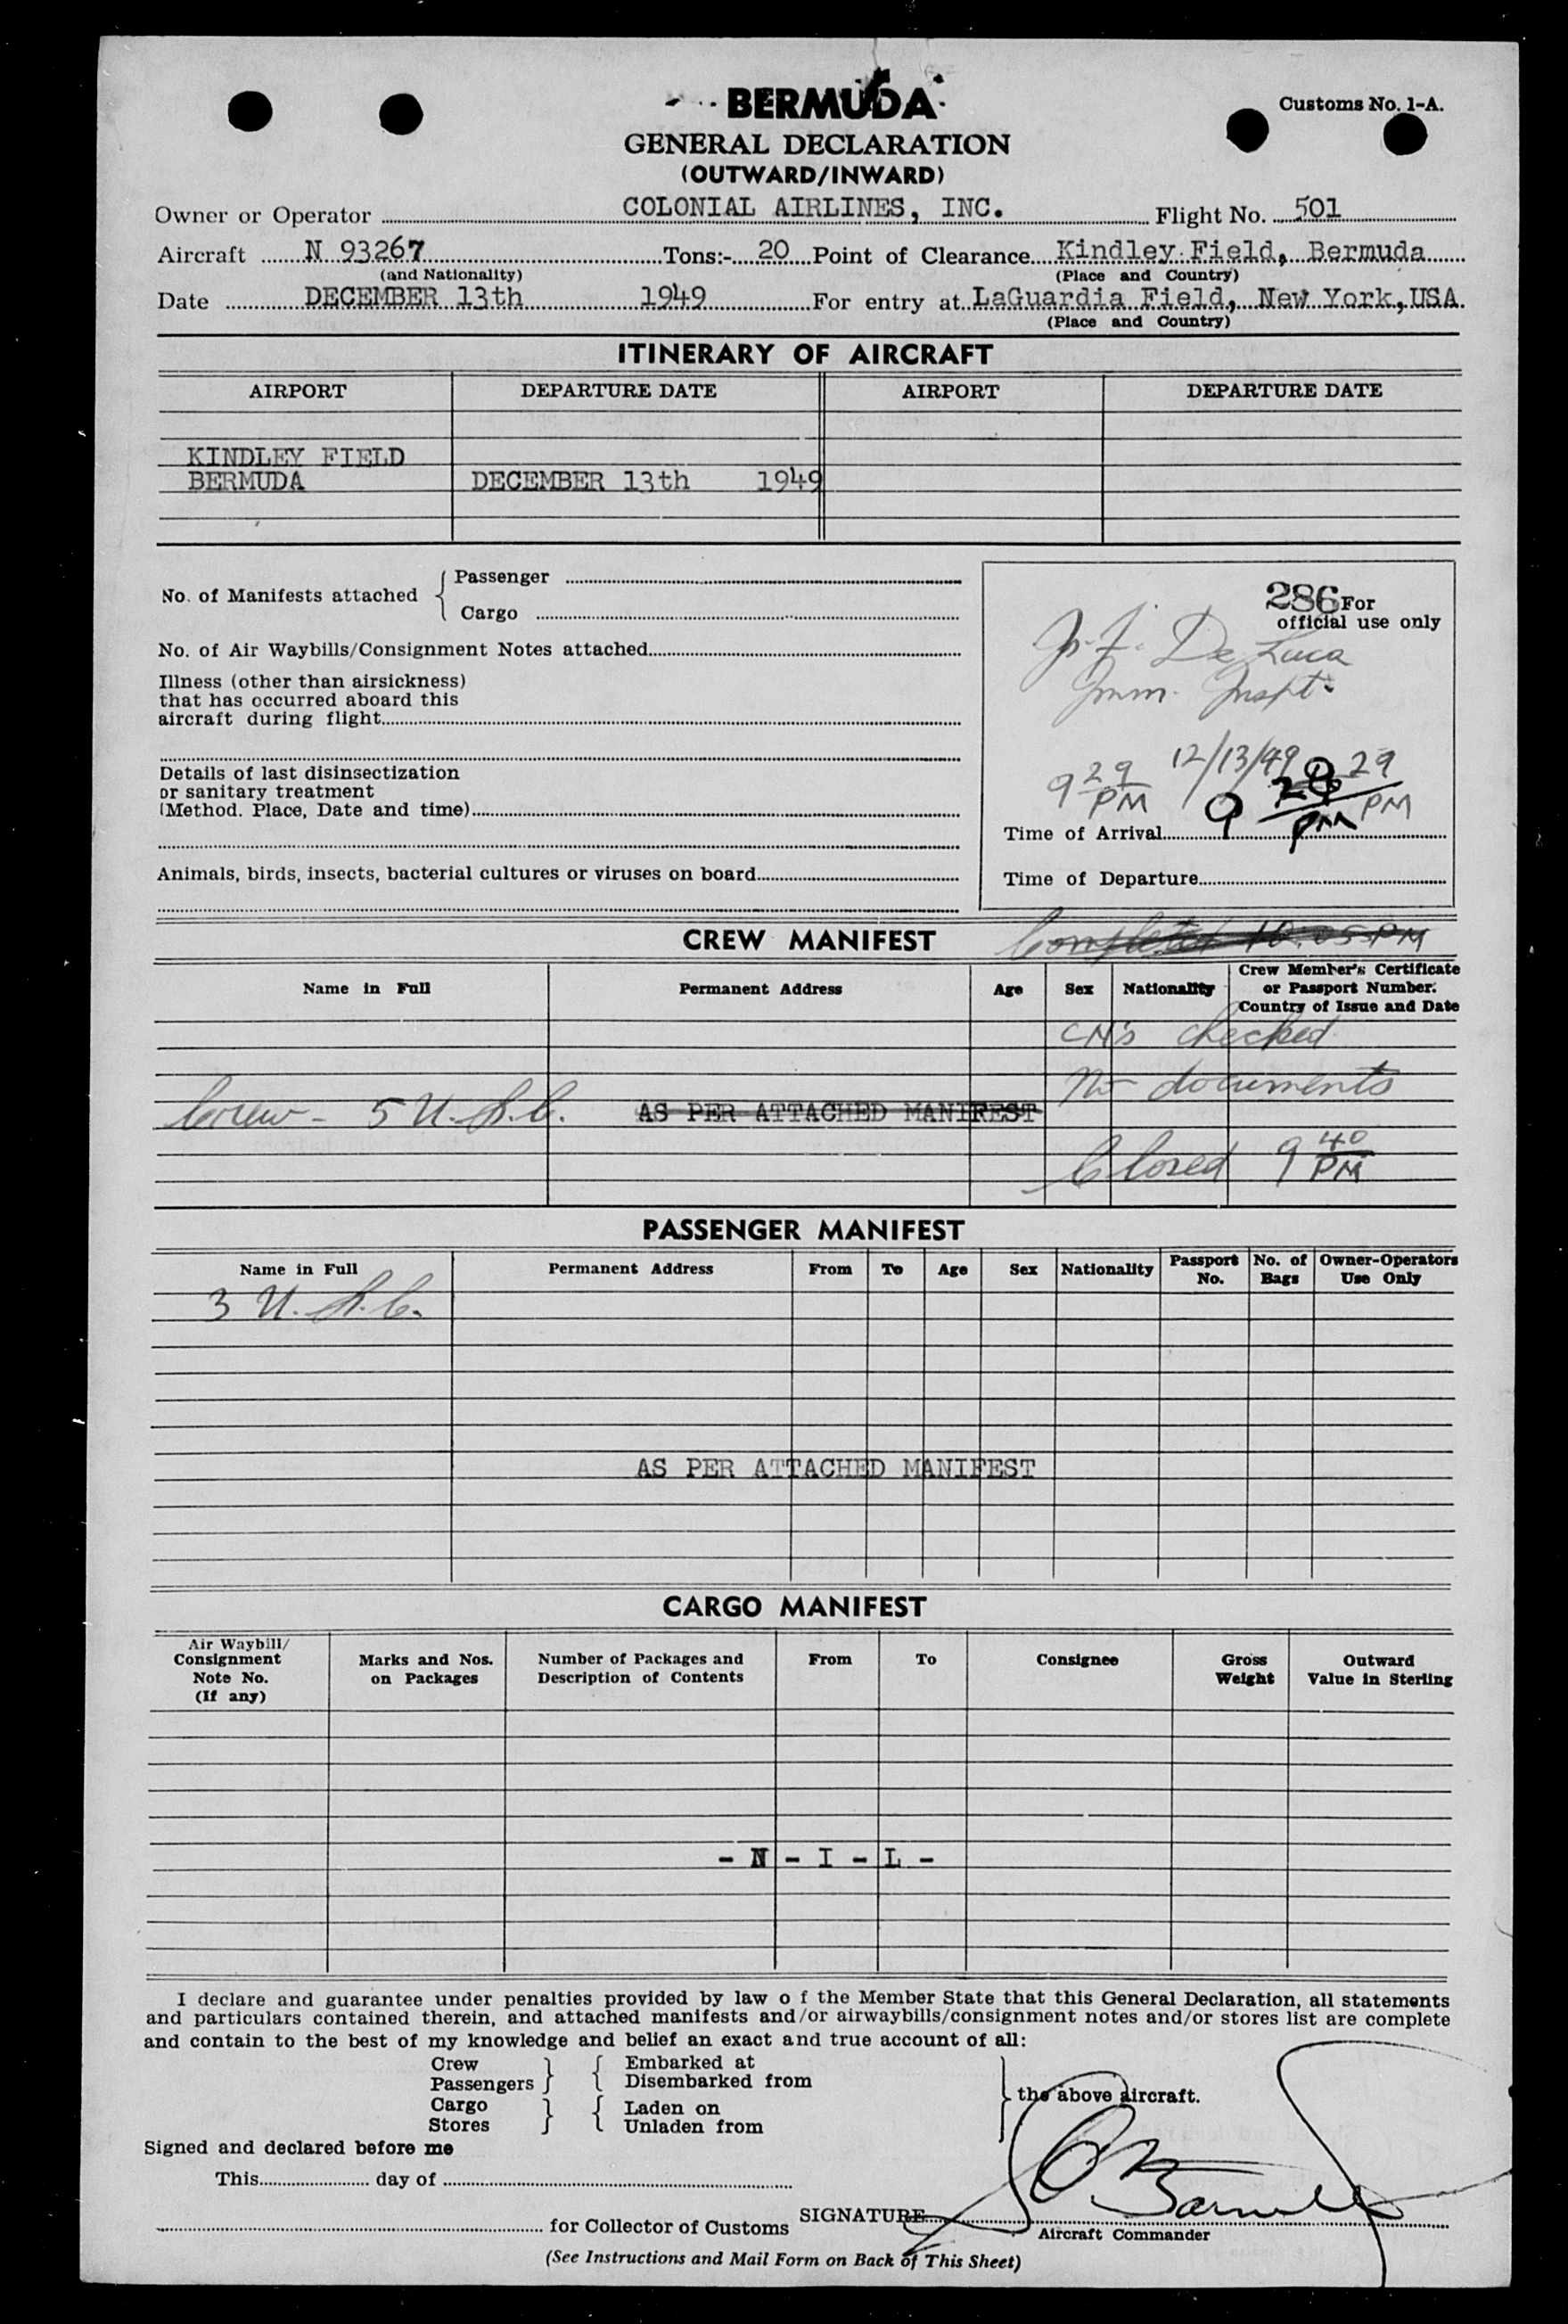 BERMUDA
Customs No. 1-A.
GENERAL DECLARATION
(OUTWARD/INWARD)
Owner or Operator COLONIAL AIRLINES, INC. Flight No. 501
Aircraft N 93267 Tons:- 20 Point of Clearance Kindley Field, Bermuda
(and Nationality) (Place and Country)
Date DECEMBER 13th 1949 For entry at LaGuardia Field, New York, USA.
(Place and Country)
ITINERARY OF AIRCRAFT
AIRPORT DEPARTURE DATE AIRPORT DEPARTURE DATE
KINDLEY FIELD
BERMUDA DECEMBER 13th 1949
No. of Manifests attached
Passenger
Cargo
No. of Air Waybills/Consignment Notes attached
Illness (other than airsickness)
that has occurred aboard this
aircraft during flight
Details of last disinsectization
or sanitary treatment
(Method. Place, Date and time)
Animals, birds, insects, bacterial cultures or viruses on board
286 For
official use only
De Luca
Imm. Inspt.
12/13/49
9 29 PM
9 29 PM
Time of Arrival
Time of Departure
CREW MANIFEST Completed 10:05 PM
Name in Full Permanent Address Age Sex Nationality Crew Member's Certificate
or Passport Number.
Country of Issue and Date
checked
No documents
Crew - 5 U.S.C. AS PER ATTACHED MANIFEST
Closed 9 40 PM
PASSENGER MANIFEST
Name in Full Permanent Address From To Age Sex Nationality Passport No. No. of Bags Owner-Operators Use Only
3 U.S.C.
AS PER ATTACHED MANIFEST
CARGO MANIFEST
Air Waybill/
Consignment
Note No.
(If any)
Marks and Nos.
on Packages
Number of Packages and
Description of Contents
From
To
Consignee
Gross
Weight
Outward
Value in Sterling
- N - I - L -
I declare and guarantee under penalties provided by law o f the Member State that this General Declaration, all statements
and particulars contained therein, and attached manifests and/or airwaybills/consignment notes and/or stores list are complete
and contain to the best of my knowledge and belief an exact and true account of all:
Crew Embarked at
Passengers Disembarked from
the above aircraft.
Cargo Laden on
Stores Unladen from
Signed and declared before me
This day of
for Collector of Customs
SIGNATURE
Aircraft Commander
(See Instructions and Mail Form on Back of This Sheet)